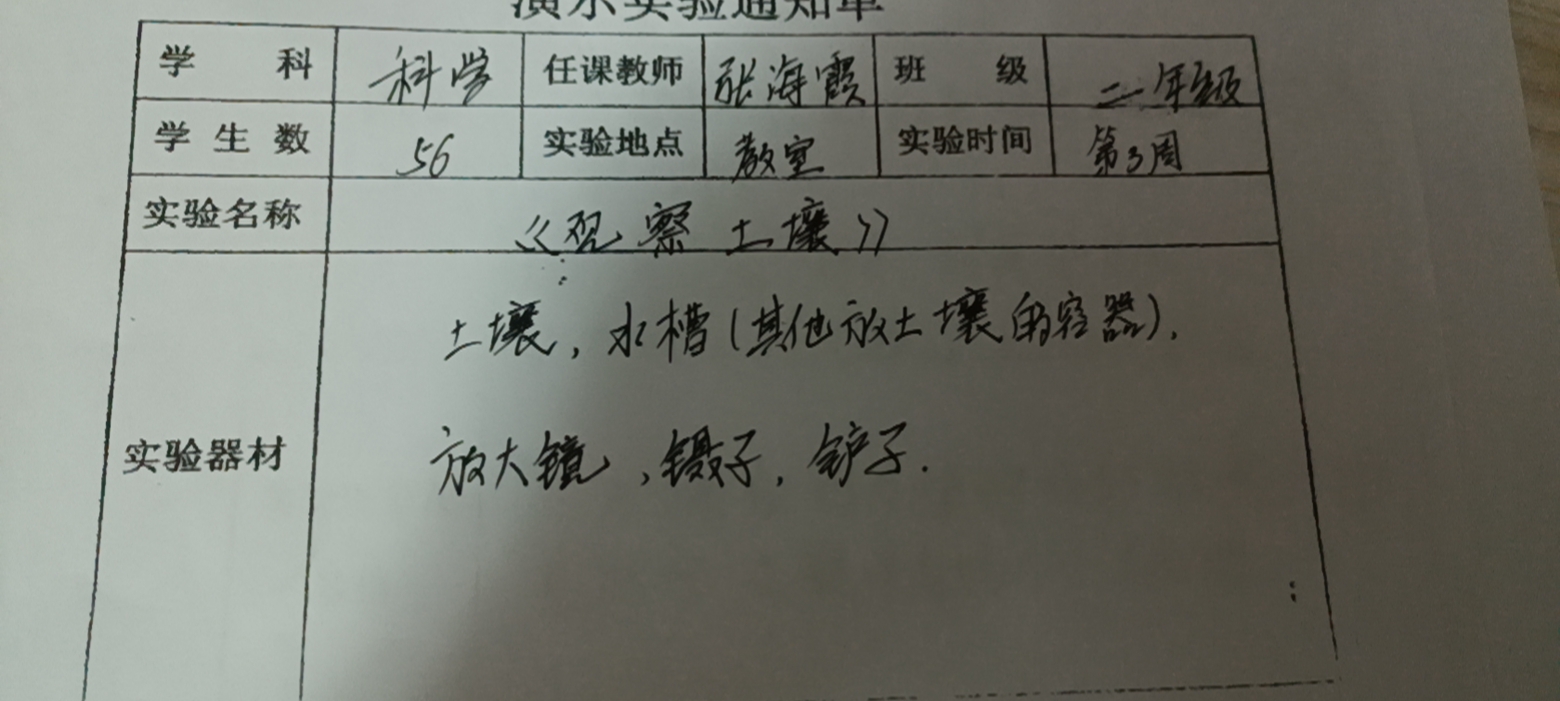 演示实验通知单
学科 科学 任课教师 张海霞 班级 二年级
学生数 56 实验地点 教室 实验时间 第3周
实验名称 《观察土壤》
土壤，水槽(其他放土壤的容器).
实验器材
放大镜，镊子，铲子.